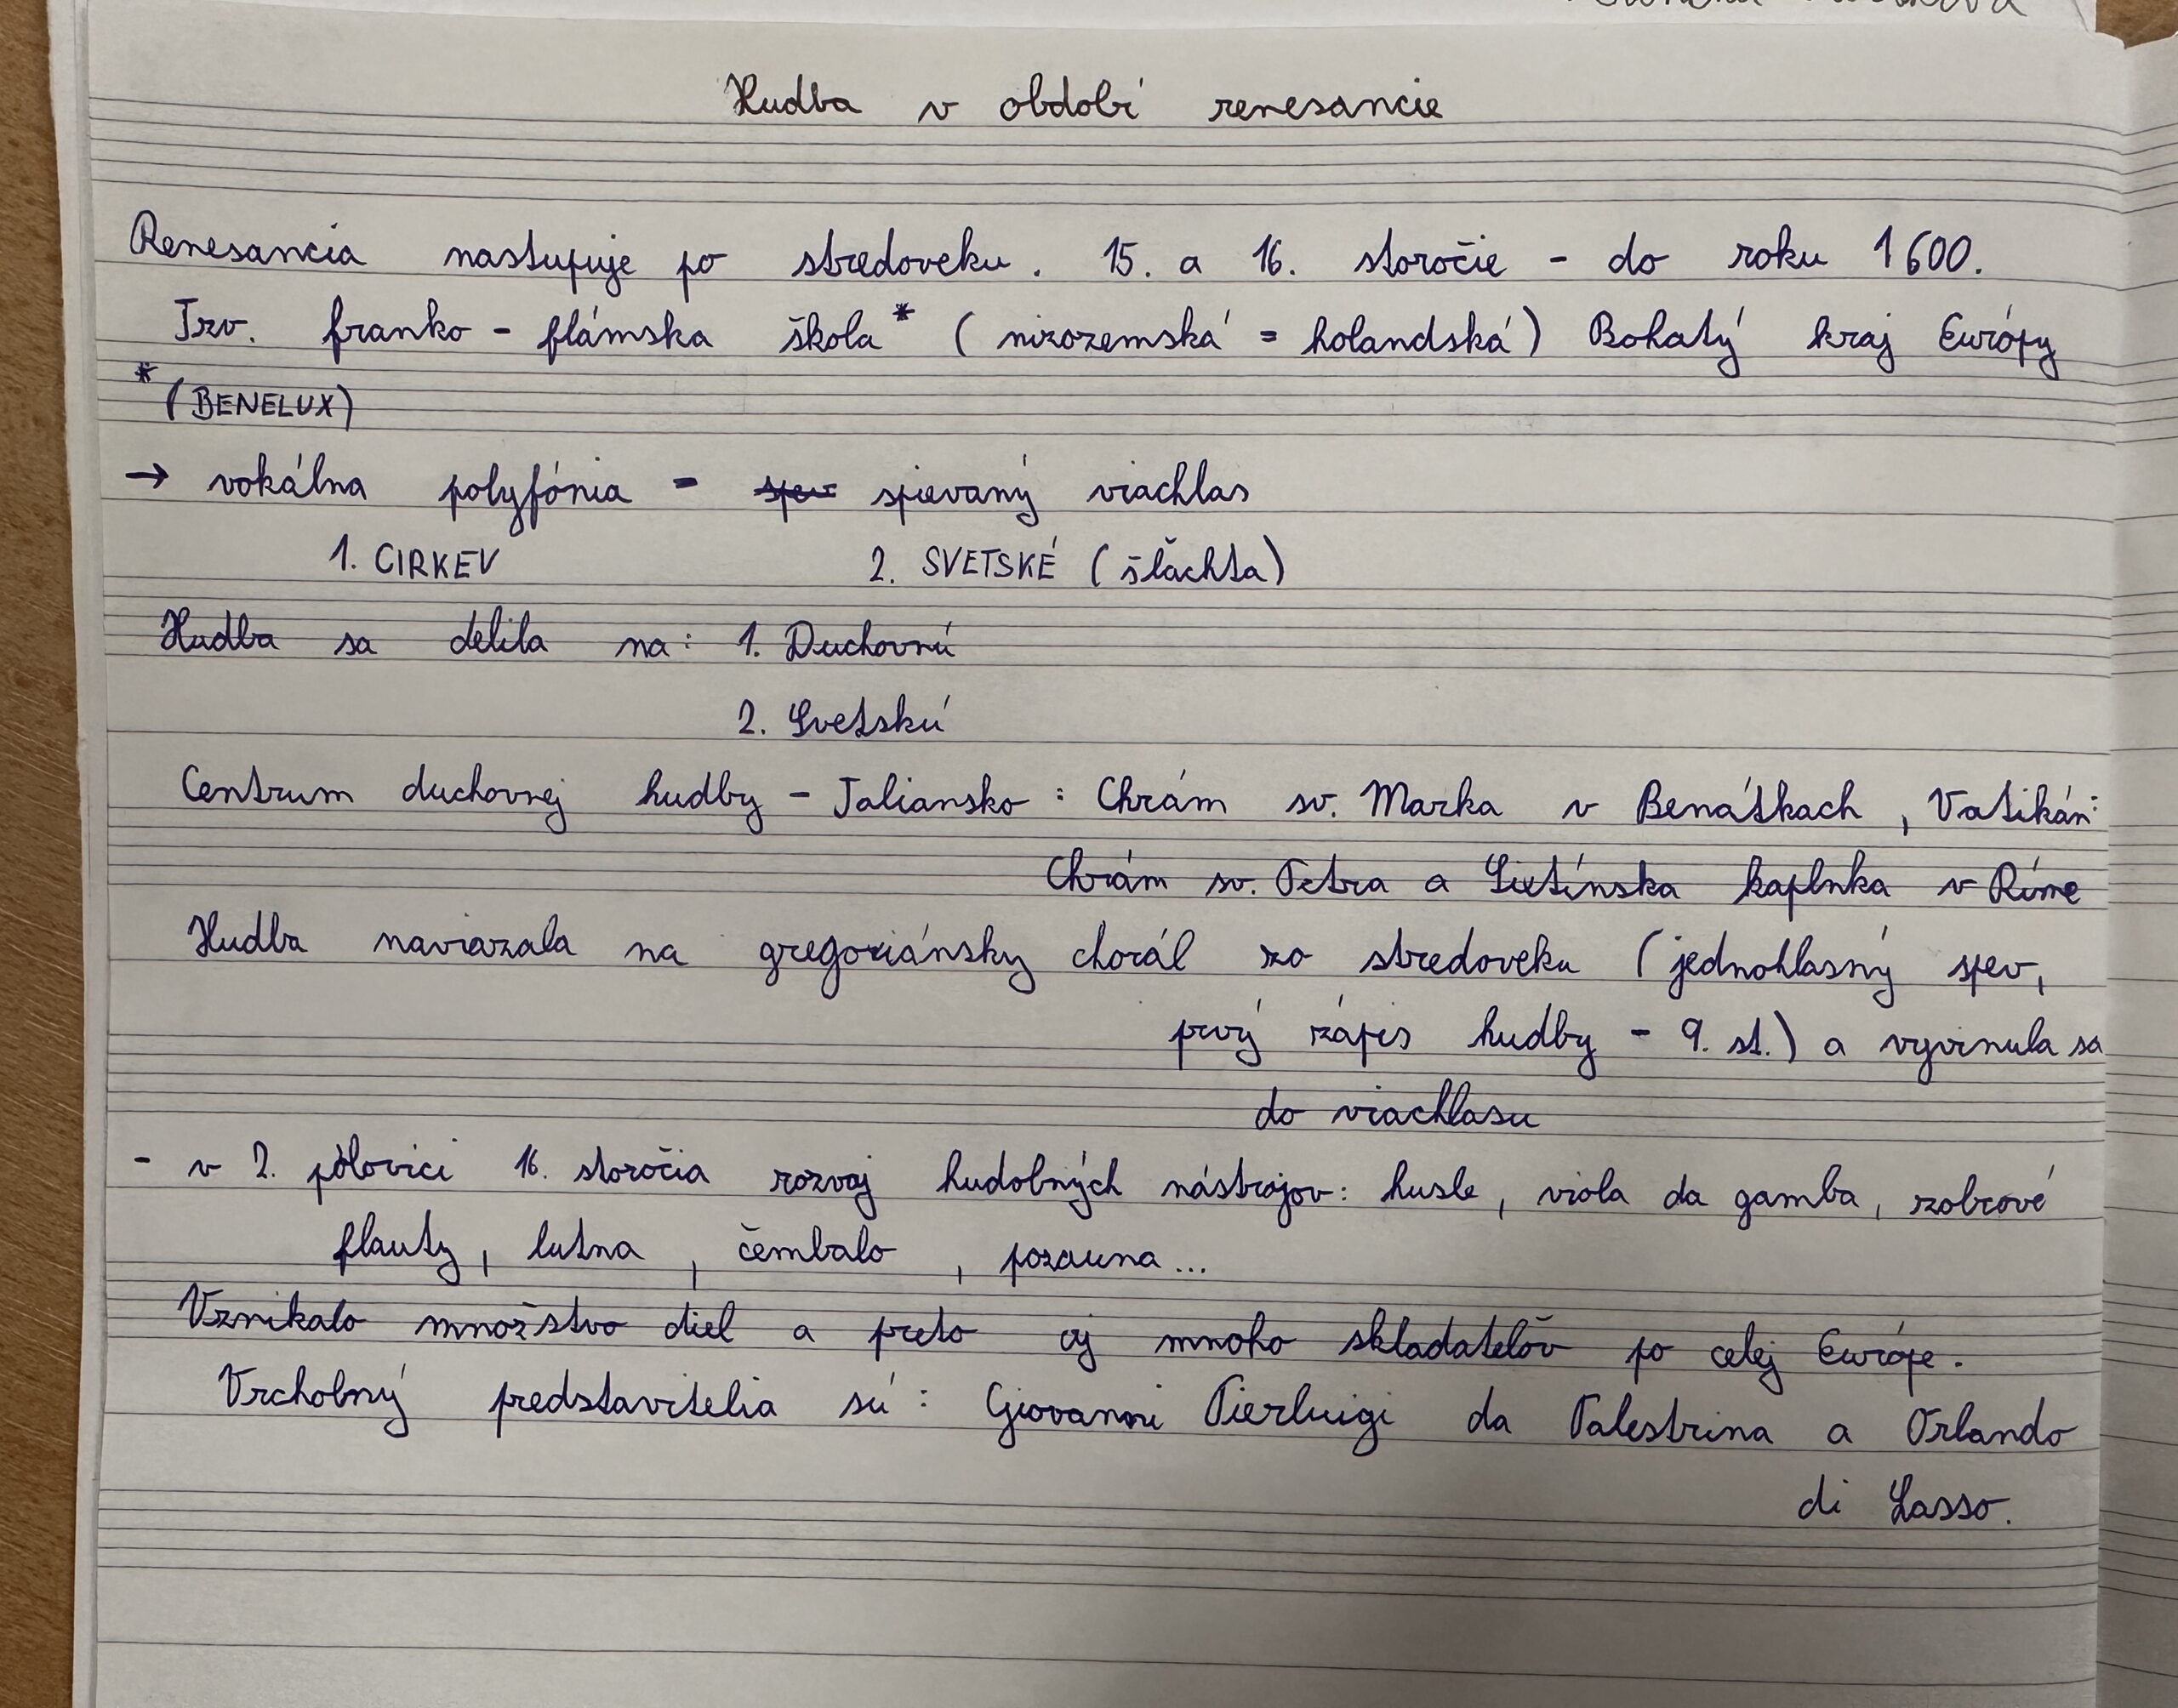 Hudba v období renesancie
Renesancia nastupuje po stredoveku. 15. a 16. storočie - do roku 1600.
Tzv. franko - flámska škola* (nizozemská = holandská) Bohatý kraj Európy
*(BENELUX)
→ vokálna polyfónia - spev spievaný viachlas
1. CIRKEV 2. SVETSKÉ (šľachta)
Hudba sa delila na: 1. Duchovnú
2. Svetskú
Centrum duchovnej hudby - Taliansko: Chrám sv. Marka v Benátkach, Vatikán:
Chrám sv. Petra a Sixtínska kaplnka v Ríme
Hudba naviazala na gregoriánsky chorál zo stredoveku (jednohlasný spev,
prvý zápis hudby - 9. st.) a vyvinula sa
do viachlasu
- v 2. polovici 16. storočia rozvoj hudobných nástrojov: husle, viola da gamba, zobcové
flauty, lutna, čembalo, pozauna...
Vznikalo množstvo diel a preto aj mnoho skladateľov po celej Európe.
Vrcholný predstavitelia sú: Giovanni Pierluigi da Palestrina a Orlando
di Lasso.